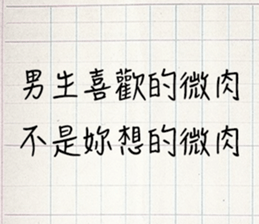 男生喜歡的微肉
不是妳想的微肉